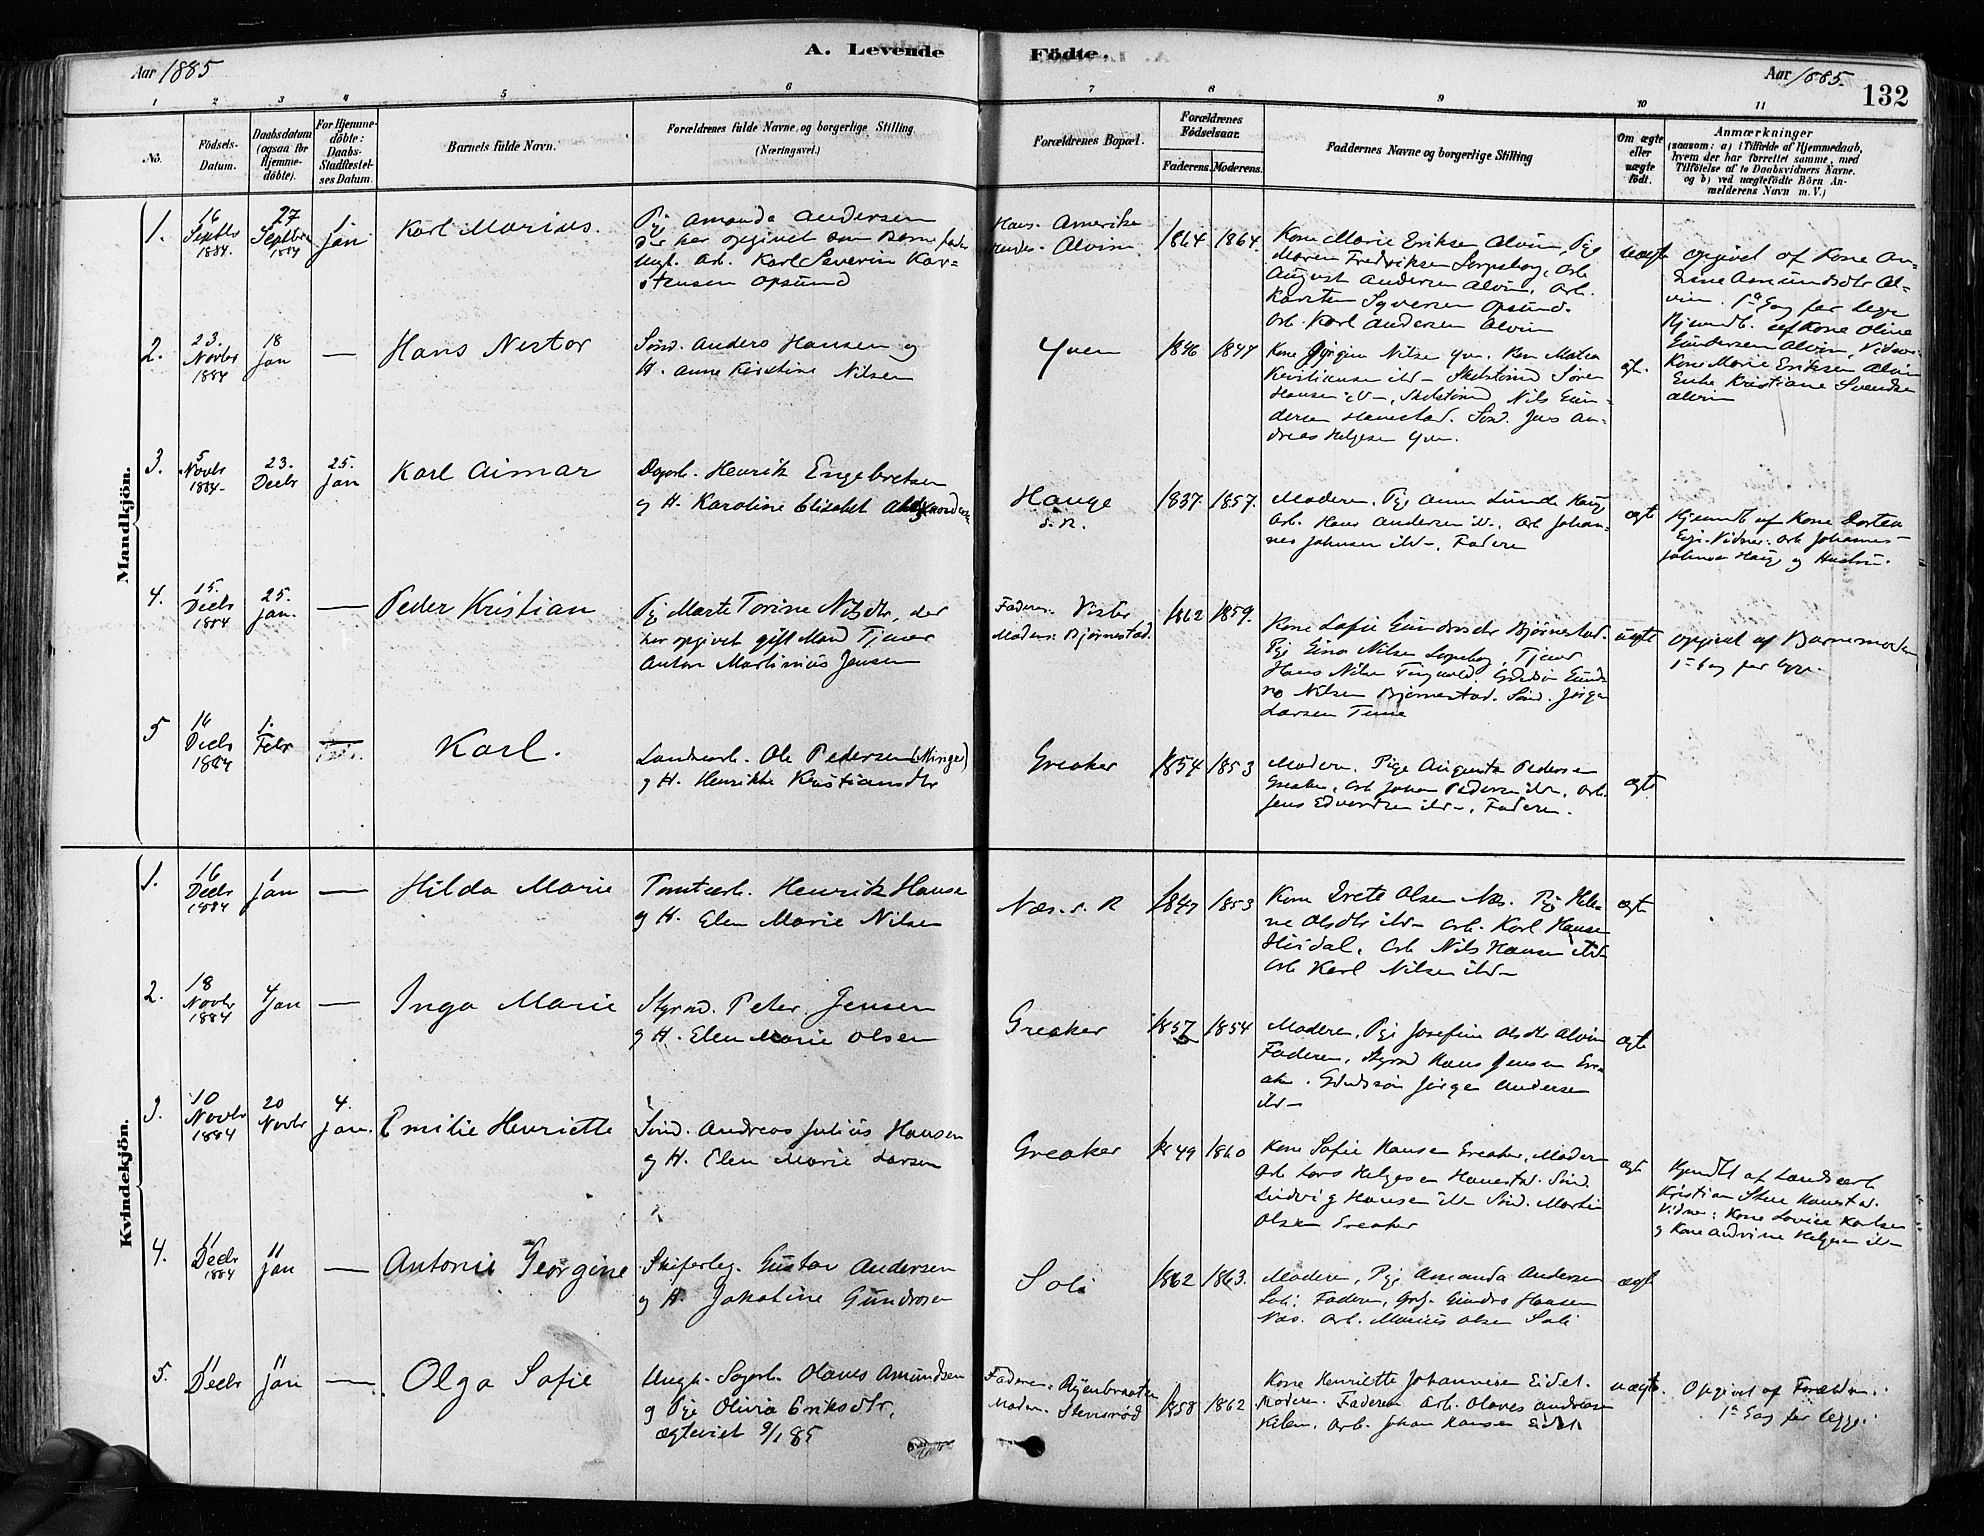 A. Levende
Födte.
Aar 1885
Aar 1885.
132
1
2
3
4
5
6
7
8
9
10
11
No.
Födsels-
Datum.
Daabsdatum
(ogsaa for
Hjemme-
döbte).
For Hjemme-
döbte:
Daabs-
Stadfæstel-
ses Datum.
Barnets fulde Navn.
Forældrenes fulde Navne, og borgerlige Stilling
(Næringsvei.)
Forældrenes Bopæl.
Forældrenes
Födselsaar.
Faderens.
Moderens.
Faddernes Navne og borgerlige Stilling
Om ægte
eller
uægte
født.
Anmærkninger
(saasom: a) i Tilfælde af Hjemmedaab,
hvem der har forrettet samme, med
Tilföielse af to Daabsvidners Navne.
og b) ved uægtefödte Börn An-
melderens Navn m. V.)
Mandkjön.
1.
16 Septbr 1884.
27 Septbr 1884
1 Jan
Karl Marius.
Pig Amanda Andersen
der har opgivet som Barnefader
Ungk. Arb. Karl Severin Kar-
stensen Opsund
Hans. Amerika
Hendes. Alvim
1864
1864.
Kone Marie Eriksen Alvim, Pige
Maren Fredriksen Sarpsborg, Arb
August Andersen Alvim, Arb.
Karsten Syversen Opsund.
Arb. Karl Andersen Alvim
uægte
opgivet af Kone An-
drine Amundsdtr Al-
vim. 1ste Gang for begge
Hjemdb. af Kone Oline
Gundersen Alvim, Vidner
Kone Marie Eriksen Alvim
Enke Kristiane Svendsen
Alvim
2.
23. Novbr 1884
18 Jan
—
Hans Nestor
Sömd. Anders Hansen og
H. Anne Kirstine Nilsen
Yven
1846
1847
Kone Jörgine Nilsen Yven. Kone Matea
Kristiansen ibd— Skibstömd Sören
Hansen ibd—, Skibstömd, Nils Gun-
dersen Hanestad. Sömd. Jens An-
dreas Helgesen Yven.
ægt.
3.
5 Novbr 1884.
23. Decbr
25. Jan
Karl Aimar
Dagarb. Henrik Engebretsen
og H. Karoline Elisabet
Hauge
s. R.
1837.
1857.
Moderen, Pige Anna Lunde Haug
Arb. Hans Andersen ibd., Arb Johan-
nes Johnsen ibd—, Faderen
ægte
Hjemdb af Kone Dortea
Vidner: Arb Johannes
Johnsen Haug og Hustru.
4.
15. Decbr 1884
25. Jan.
—
Peder Kristian
Pig Marte Torine Nilsdtr, der
har opgivet gift Mand Tjener
Anton Martinius Jensen
Faderen. Vister
Moderens: Bjørnestad.
1862
1859.
Kone Sofie Gundersdtr Bjørnestad.
Pige Gina Nilsen Sarpsborg, Tjener
Hans Nilsen Gaardsøn Gund-
ro Nilsen Bjørnestad. Sömd. Jörgen
Larsen Tune
uægte
opgivet af Barnemoderen
1ste Gang for begge.
5
16 Decbr 1884
1. Febr
—
Karl.
Landarb. Ole Pedersen (Minge)
og H. Henrikke Kristiansdtr
Greaker
1854
1853
Moderen. Pige Augusta Pedersen
Greaker, Arb Johan Pedersen ibd—, Arb.
Jens Edvardsen ibd—, Faderen.
ægte
Kvindekjön.
1.
16 Decbr 1884
1 Jan
—
Hilda Marie
Tomtearb. Henrik Hansen
og H. Elen Marie Nilsen
Næs. s. R
1847
1853
Kone Grete Olsen Næs. Pige Hele-
ne Olsdtr ibd— Arb. Karl Hansen
Hirdal. Arb Nils Hansen ibd—
Arb Karl Nilsen ibd—
ægte
2.
18 Novbr 1884
4 Jan
—
Inga Marie
Styrmd. Peter Jensen
og H. Elen Marie Olsen
Greaker
1857
1854
Moderen, Pige Josefine Olsdtr Alvim
Faderen, Styrmd Hans Jensen Gre-
aker. Gaardsøn Jörgen Andersen
ibd—
ægte
3.
10 Novbr 1884
20 Novbr
4. Jan.
Emilie Henriette
Sömd. Andreas Julius Hansen
og H. Elen Marie Larsen
Greaker
1849
1860
Kone Sofie Hansen Greaker, Moderen
Arb Lars Helgesen Hanestad. Sömd.
Ludvig Hansen ibd— Sömd. Martin
Olsen Greaker
ægt
Hjemdbt af Landarb
Kristian Hanestad.
Vidner: Kone Lovise Karlsen
og Kone Andrine Helgesen ibd—
4.
11 Decbr 1884
11 Jan
—
Antonie Georgine
Skiferlæg. Gustav Andersen
og H. Jakobine Gundrosen
Soli
1862
1863.
Moderen, Pige Amanda Andersen
Soli, Faderen, Gundro Hansen
Næs. Arb. Marius Olsen Soli
ægt
5.
11 Decbr
11 Jan
—
Olga Sofie
Ungk. Sagarb. Olaves Amundsen
og Pige Olivia Eriksdtr,
ægteviet 9/1 85
Faderen:
Moderen.
1858
1862
Kone Henriette Johannesen Eidet.
Moderen. Faderen Arb. Olaves Andreasen
Kilen. Arb. Johan Hansen Eidet
uægte.
Opgivet af Forældrene.
1ste Gang for begge.